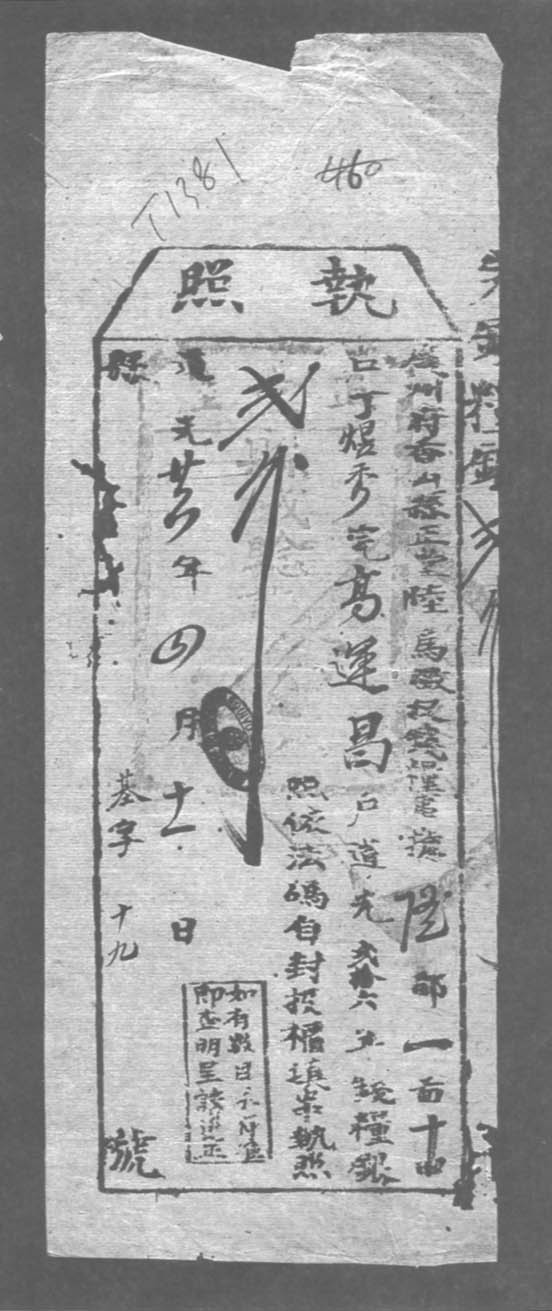 T1381
460
執照
廣州府香山縣正堂陸 為徵收錢糧事據隆都一啚十甲
口丁煜秀完高運昌户道光弍拾六年錢糧銀
照依法碼自封投櫃填串執照
弍分
如有數目不符
即查明呈
道光廿六年四月十一日
縣
基字 十九
號